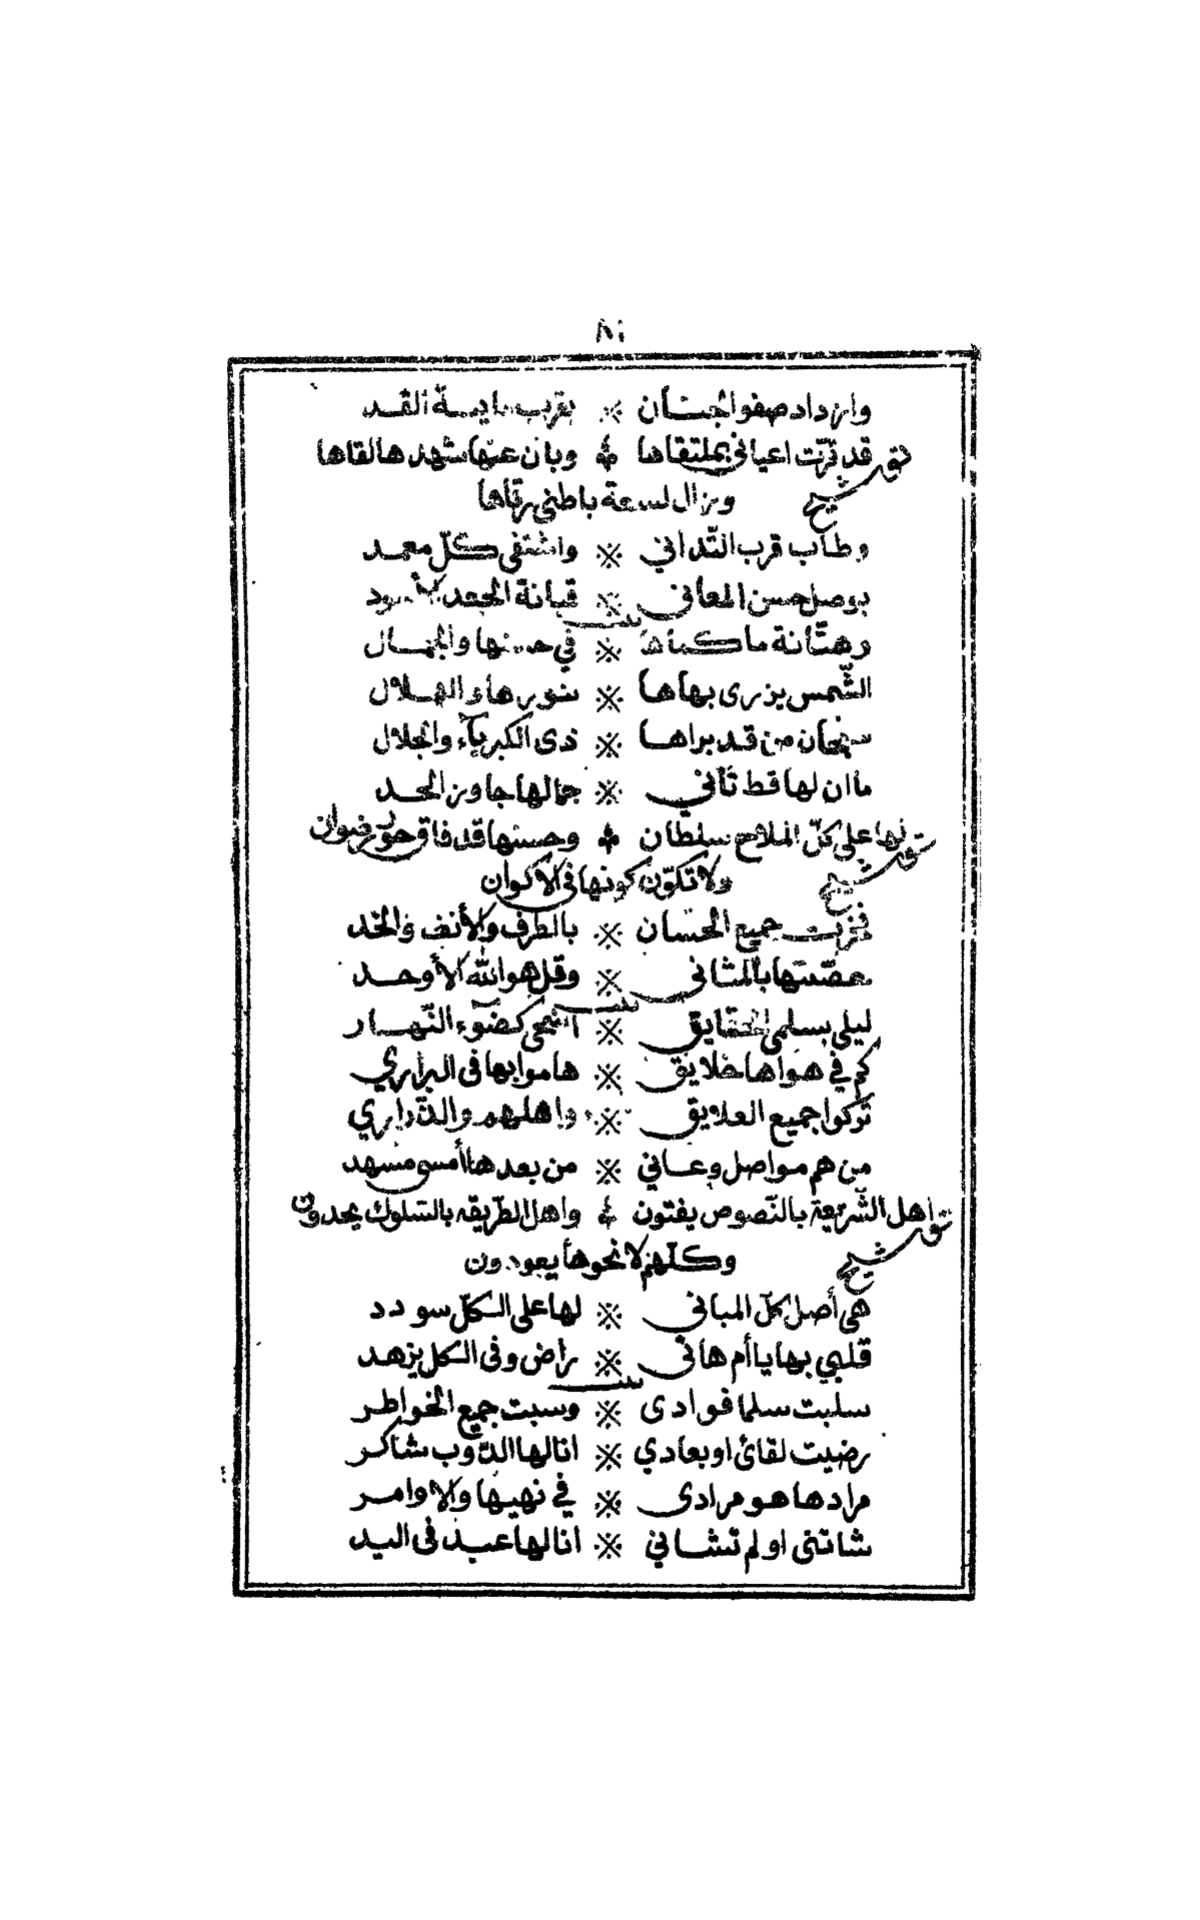 ٨١
وازداد صفو الجنان ※ بقرب مايسة القد
توشيح قد قرّت اعياني بملتقاها ۞ وبان عنها شهدها لقاها
وزال لسعة باطني رقاها
وطاب قرب التّداني ※ واشتفى كلّ معمد
بوصل حسن المعاني ※ قبانة الجعد الأسود
بيت
رهتّانة ماكماها ※ في حسنها والجمال
الشّمس يزرى بهاها ※ بنورها والهلال
سبحان من قد براها ※ ذى الكبرياء والجلال
ما ان لها قط ثاني ※ جمالها جاوز الحد
توشيح لها على كلّ الملاح سلطان ۞ وحسنها قد فاق حور رضوان
ولا تكوّن كونها فى الاكوان
فزت جميع الحسان ※ بالطرف والأنف والخد
حصّنتها بالمثاني ※ وقل هو الله الأوحد
بيت
ليلى بسلمى الحقايق ※ اضحى كضوء النّهار
كم في هواها خلايق ※ هاموا بها فى البراري
تركوا جميع العلايق ※ واهلهم والذّراري
من هم مواصل وعاني ※ من بعدها أمسى مسهد
توشيح اهل الشّريعة بالنّصوص يفتون ۞ واهل الطّريقه بالسّلوك يحدون
وكلّهم لانحوها يعودون
هي أصل كل المباني ※ لها على الكلّ سودد
قلبي بها يا أم هاني ※ راض وفى الكل يزهد
بيت
سلبت سلما فوادى ※ وسبت جميع الخواطر
رضيت لقائ او بعادي ※ انا لها الدّوب شاكر
مرادها هو مرادى ※ في نهيها والاوامر
شاتنى او لم تشاني ※ انا لها عبد فى اليد